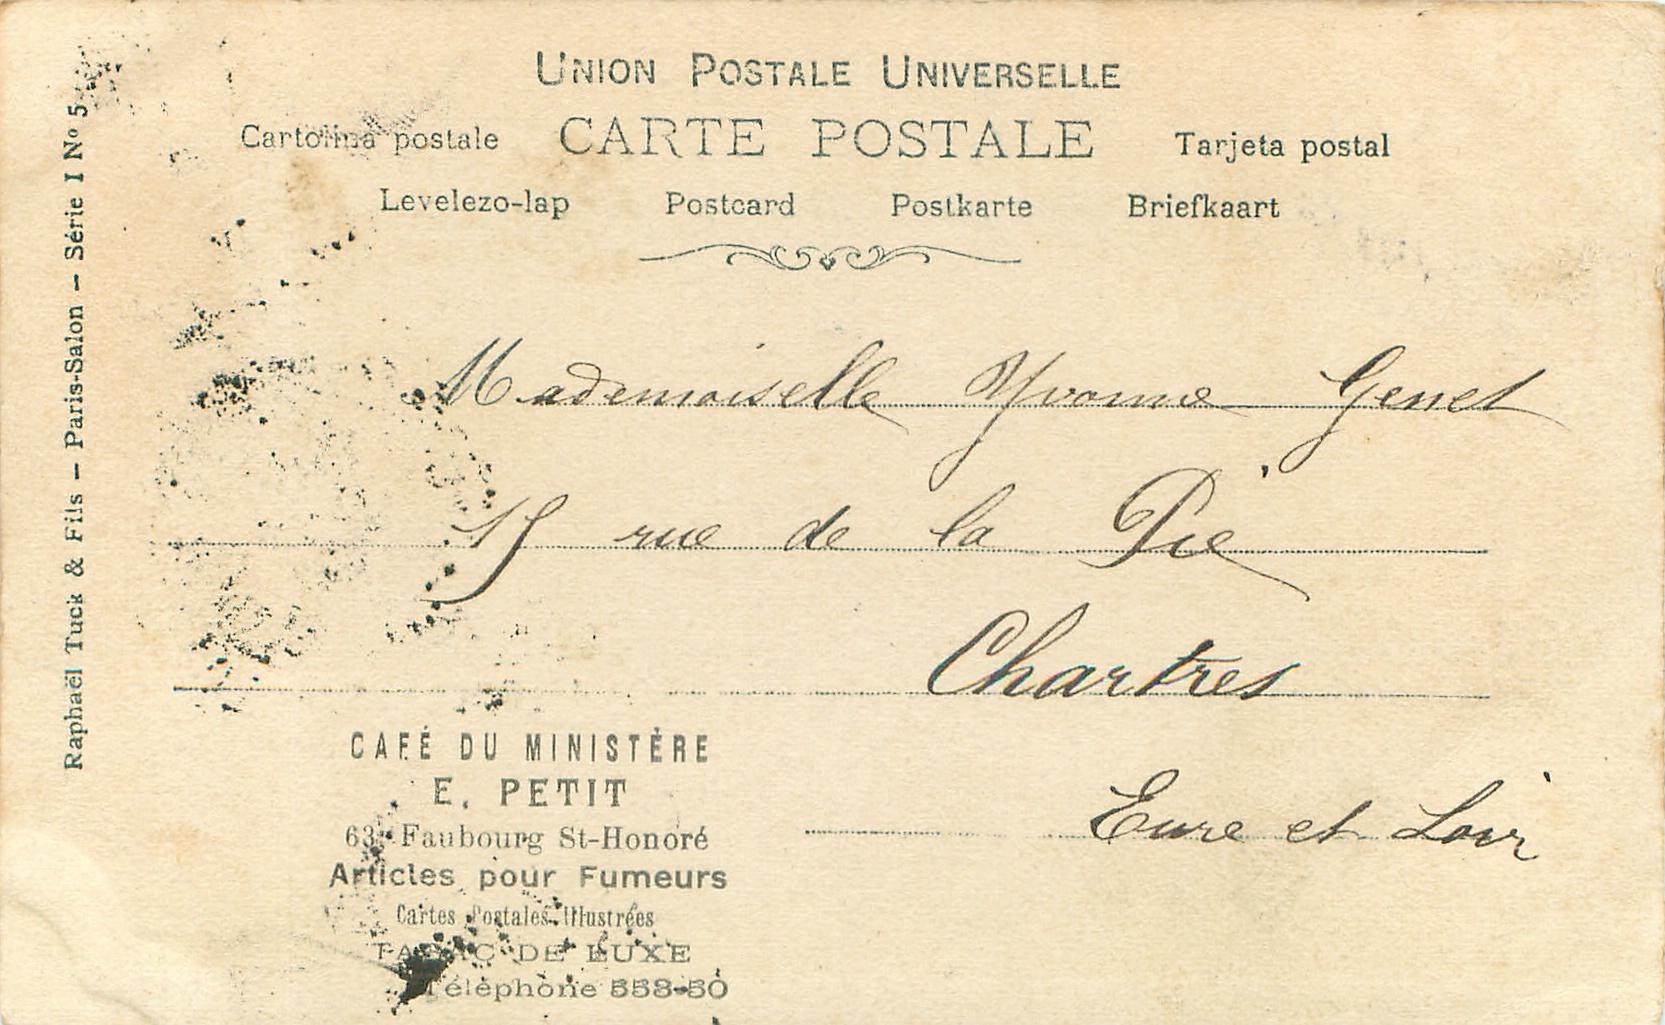 Union Postale Universelle
Cartolina postale CARTE POSTALE Tarjeta postal
Levelezo-lap Postcard Postkarte Briefkaart
Raphaël Tuck & Fils – Paris-Salon – Série I Nº 5
Mademoiselle Yvonne Genet
15 rue de la Pie
Chartres
Eure et Loir
CAFÉ DU MINISTÈRE
E. PETIT
63, Faubourg St-Honoré
Articles pour Fumeurs
Cartes Postales Illustrées
TABAC DE LUXE
Téléphone 558-50